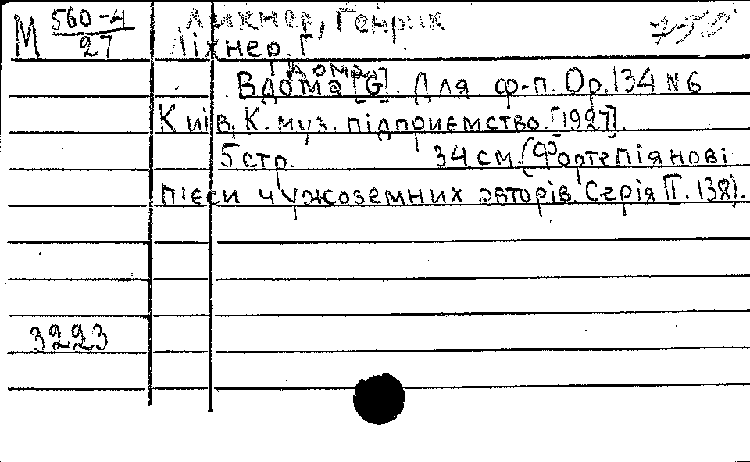 М 560-4/27
Ліхнер, Генрик
Ліхнер, Г.
Вдома [G]. Для ф-п. Op. 134 N 6
Київ, К. муз. підприємство. [1927].
5 стр. 34 см. (Фортепіянові
пієси чужоземних авторів. Серія II. 138).
3223